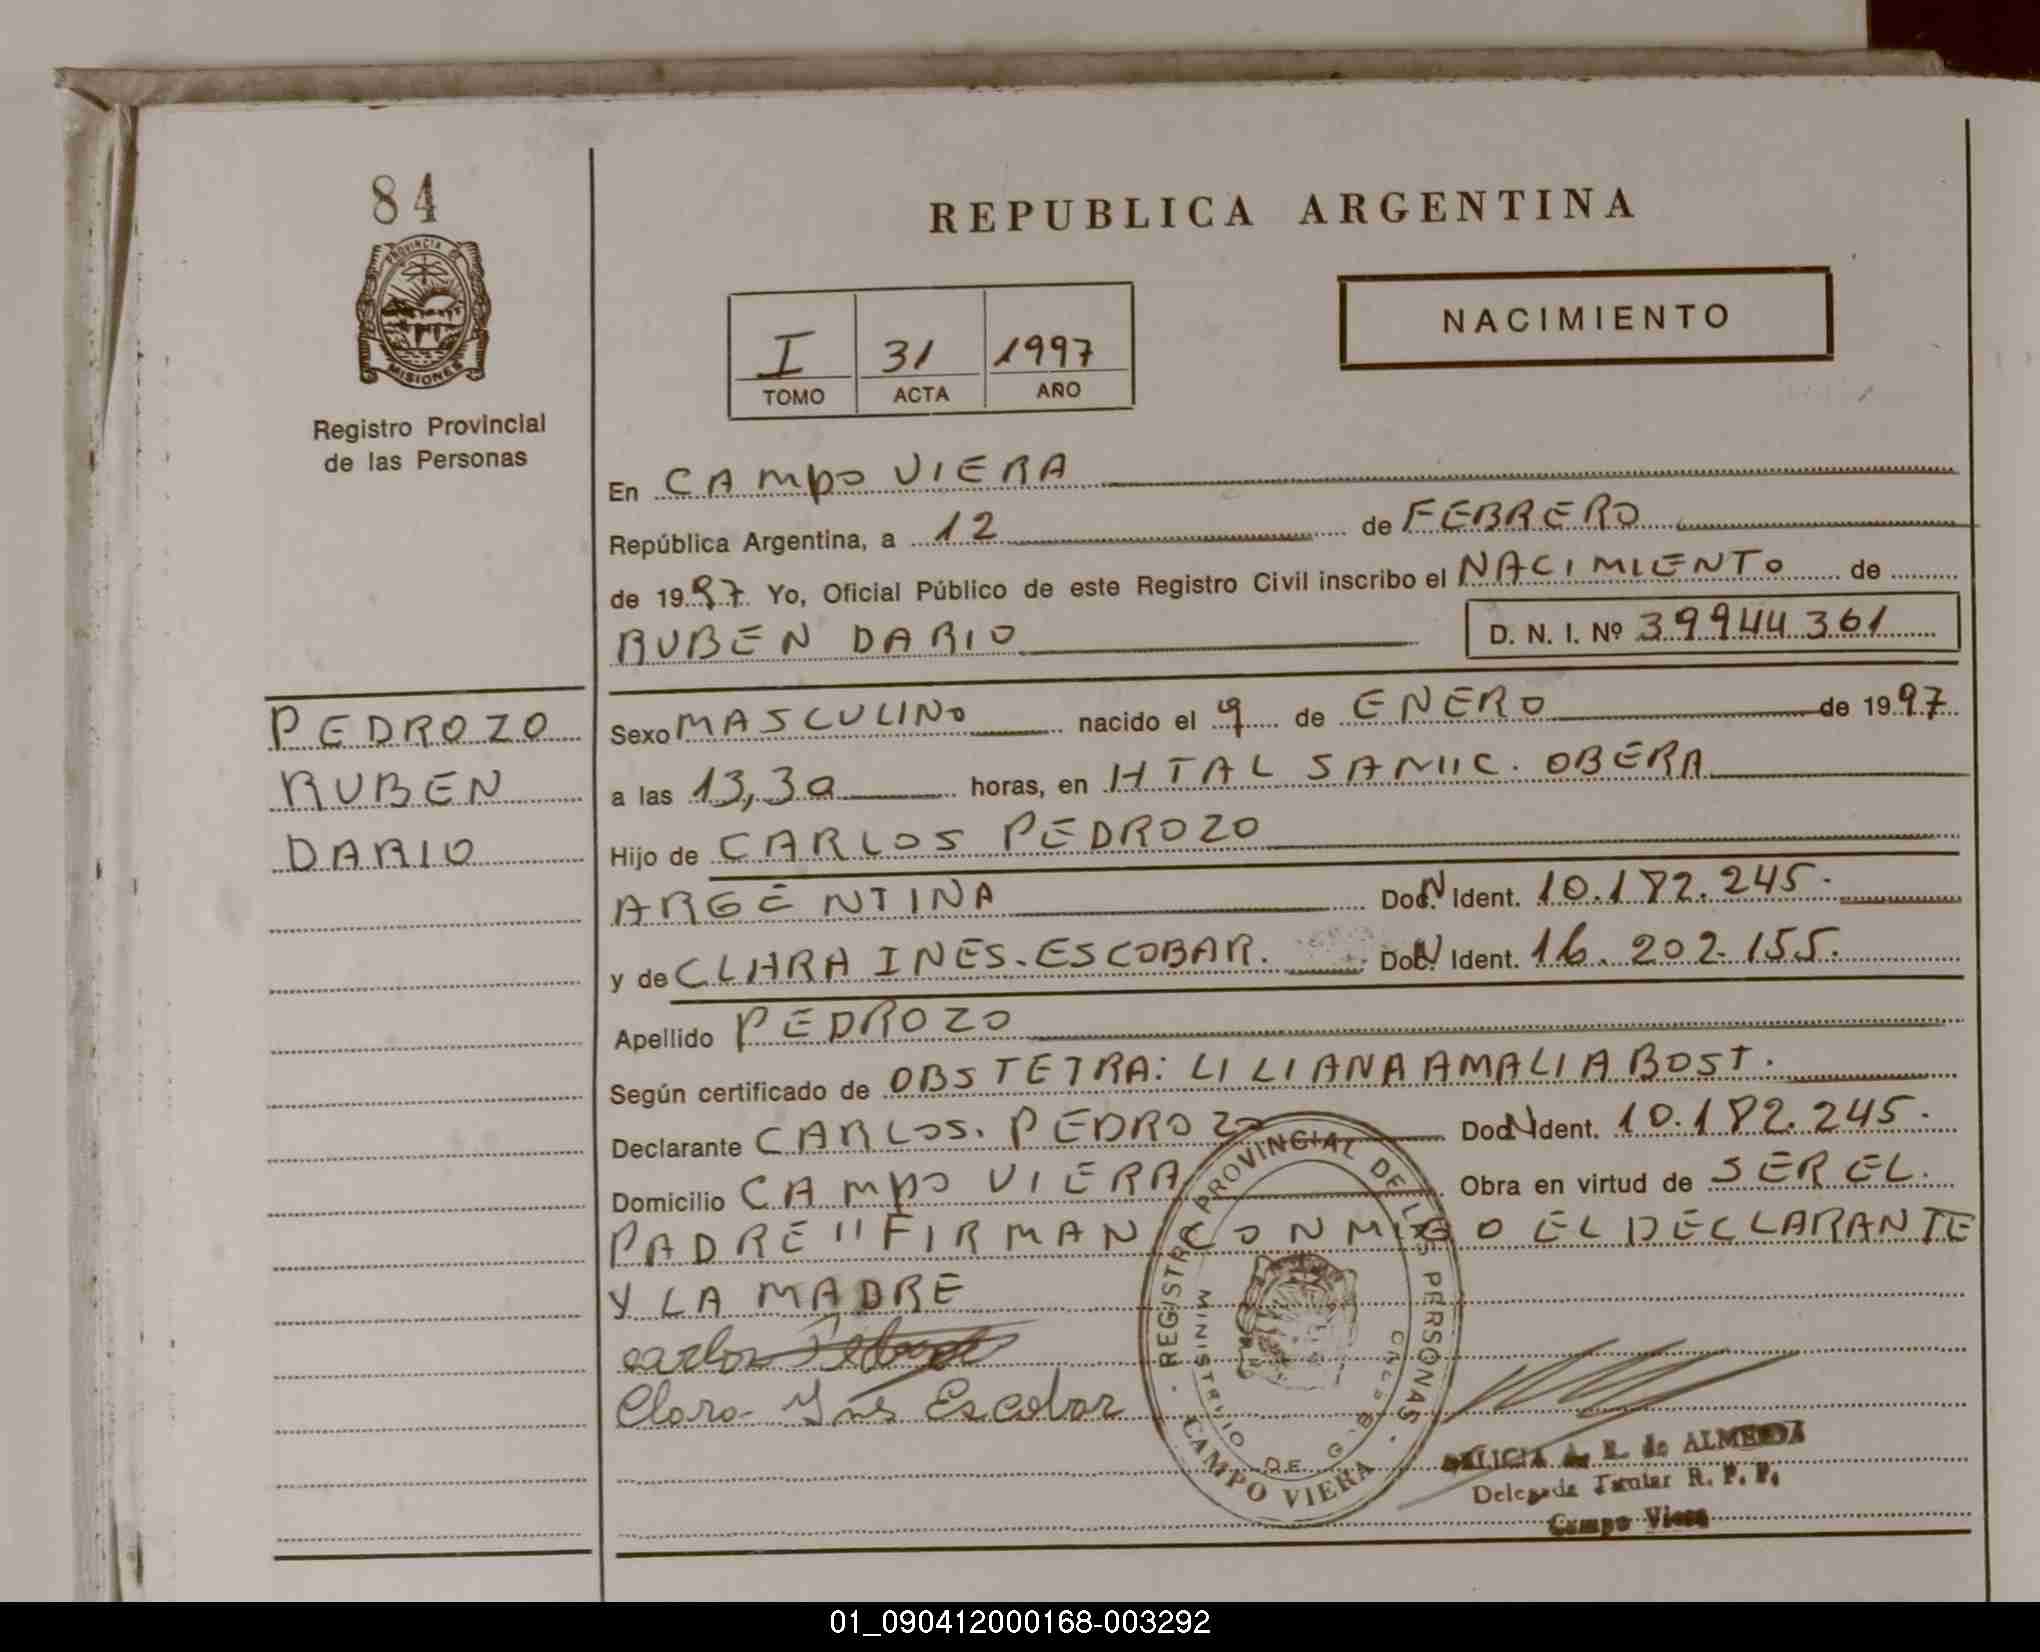 84
PROVINCIA DE
MISIONES
Registro Provincial
de las Personas
PEDROZO
RUBEN
DARIO
REPUBLICA ARGENTINA
I 31 1997
TOMO ACTA AÑO
NACIMIENTO
En CAMPO VIERA
República Argentina, a 12 de FEBRERO
de 1997 Yo, Oficial Público de este Registro Civil inscribo el NACIMIENTO de
RUBEN DARIO D. N. I. Nº 39944361
Sexo MASCULINO nacido el 9 de ENERO de 1997
a las 13,30 horas, en HTAL SAMIC. OBERA
Hijo de CARLOS PEDROZO
ARGENTINA Doc. N Ident. 10.182.245.
y de CLARA INES. ESCOBAR. Doc. N Ident. 16.202.155.
Apellido PEDROZO
Según certificado de OBSTETRA: LILIANA AMALIA BOST.
Declarante CARLOS. PEDROZO Doc. N Ident. 10.182.245.
Domicilio CAMPO VIERA Obra en virtud de SER EL.
PADRE " FIRMAN CONMIGO EL DECLARANTE
Y LA MADRE
carlos
Clara Ines Escobar
REGISTRO PROVINCIAL DE LAS PERSONAS
MINISTERIO DE G.
CAMPO VIERA
A. R. de ALMEIDA
Delegada Titular R. P. P.
Campo Viera
01_090412000168-003292